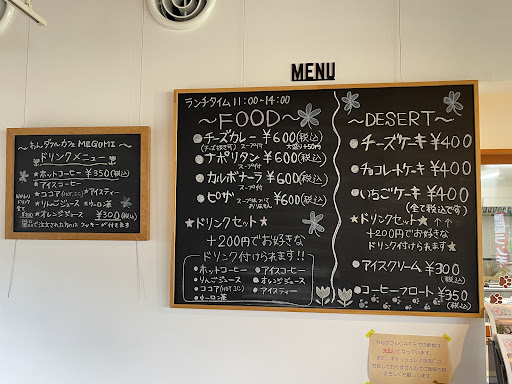 MENU
ランチタイム 11:00~14:00
~FOOD~
チーズカレー ¥600(税込)
(チーズ抜き可) スープ付 大盛り+50円
ナポリタン ¥600(税込)
スープ付
カルボナーラ ¥600(税込)
スープ付
ピザ ¥600(税込)
★ドリンクセット★
+200円でお好きな
ドリンク付けられます!!
ホットコーヒー
アイスコーヒー
りんごジュース
オレンジジュース
ココア(HOT,IC)
アイスティー
ウーロン茶
~DESERT~
チーズケーキ ¥400
チョコレートケーキ ¥400
いちごケーキ ¥400
(全て税込です)
★ドリンクセット★ ↑ ↑
+200円でお好きな
ドリンク付けられます★
アイスクリーム ¥300
(税込)
コーヒーフロート ¥350
(税込)
~わんダフルカフェ MEGUMI~
ドリンクメニュー
★ホットコーヒー ¥350(税込)
★アイスコーヒー
★ココア(HOT,IC) ★アイスティー
★りんごジュース ★ウーロン茶
★オレンジジュース ¥300(税込)
クッキーが付きます